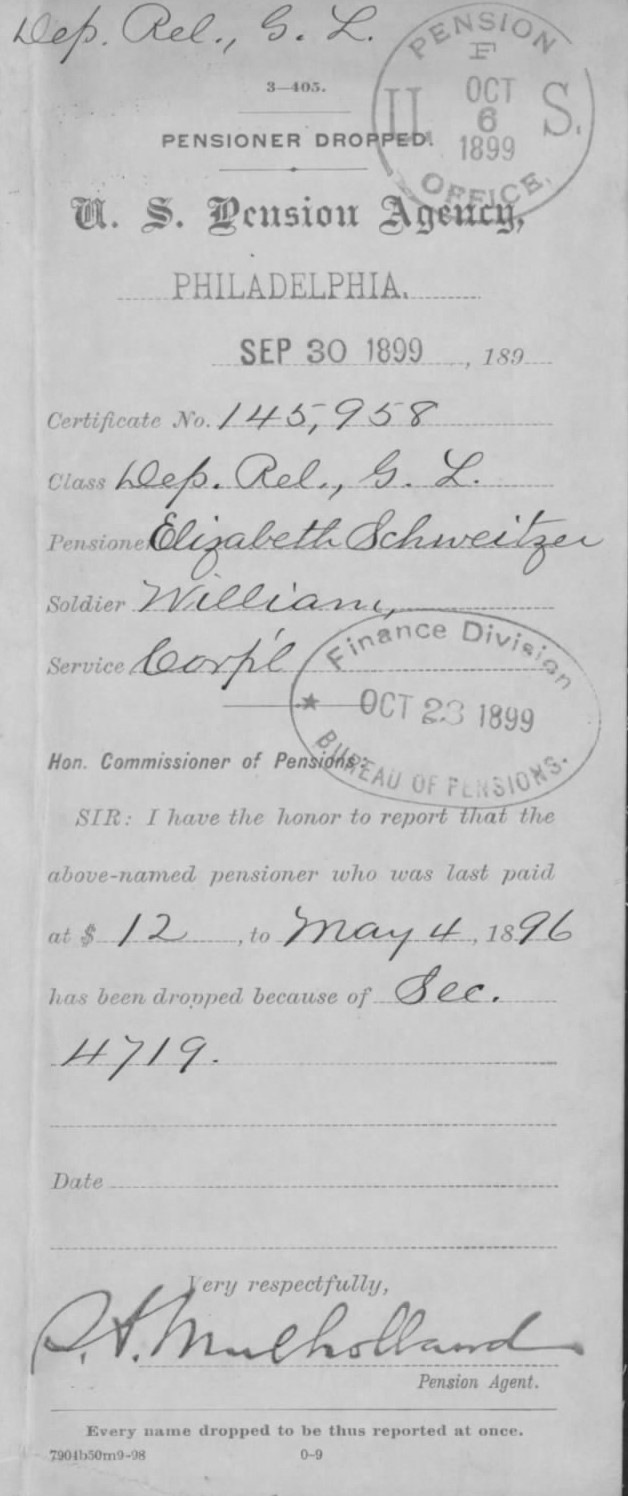 Dep. Rel., G. L.
PENSION
F
U. S.
OCT
6
1899
OFFICE.
3—405.
PENSIONER DROPPED.
U. S. Pension Agency,
PHILADELPHIA.
SEP 30 1899, 189
Certificate No. 145,958
Class Dep. Rel., G. L.
Pensioner Elizabeth Schweitzer
Soldier William,
Service Corp'l
Finance Division
★ OCT 23 1899
BUREAU OF PENSIONS.
Hon. Commissioner of Pensions:
SIR: I have the honor to report that the
above-named pensioner who was last paid
at $ 12, to May 4, 1896
has been dropped because of Sec.
4719.
Date
Very respectfully,
Mulholland
Pension Agent.
Every name dropped to be thus reported at once.
7904b50m9-98 0-9